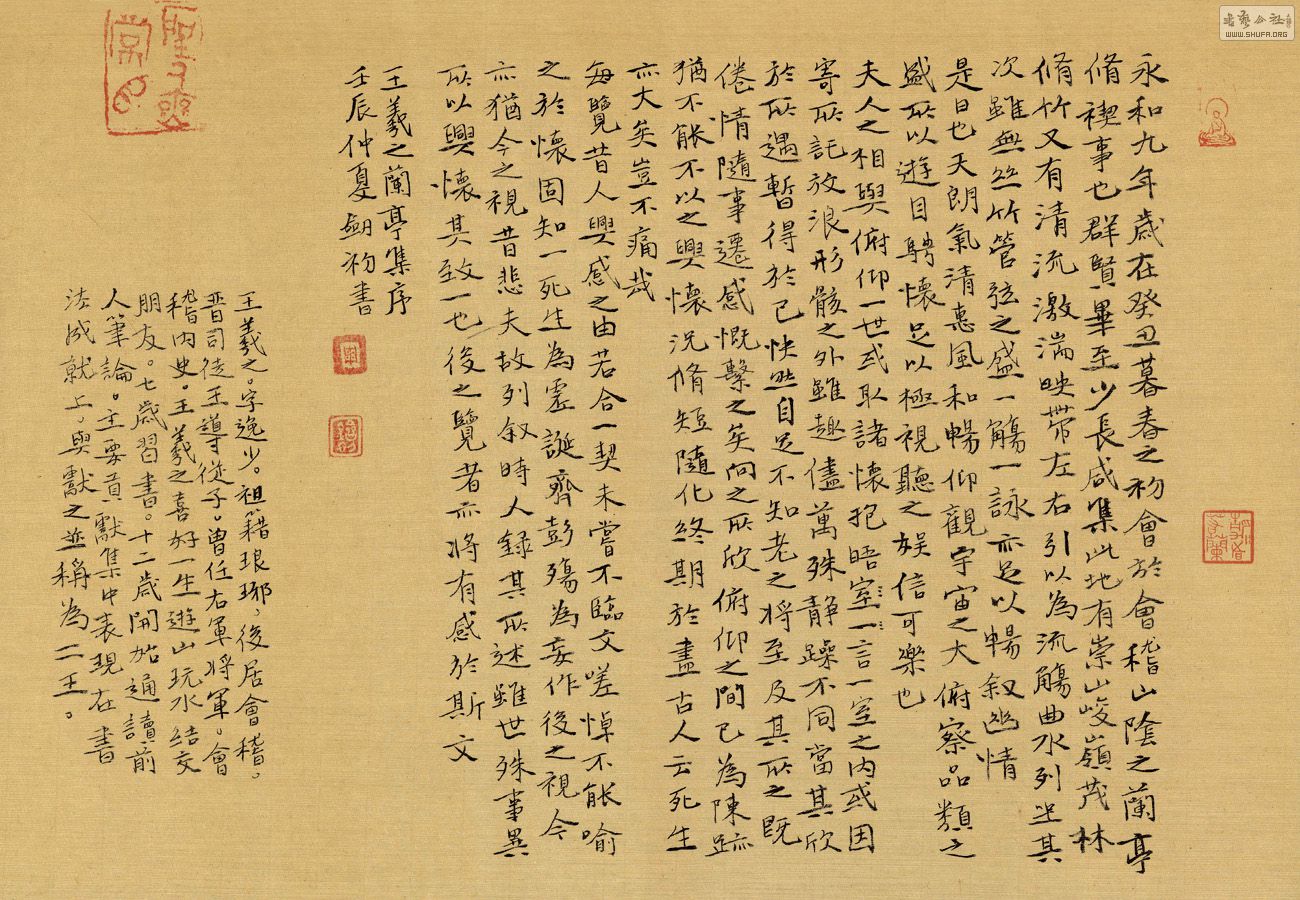 永和九年歲在癸丑暮春之初會於會稽山陰之蘭亭
脩禊事也群賢畢至少長咸集此地有崇山峻嶺茂林
脩竹又有清流激湍映帶左右引以為流觴曲水列坐其
次雖無絲竹管弦之盛一觴一詠亦足以暢叙幽情
是日也天朗氣清惠風和暢仰觀宇宙之大俯察品類之
盛所以遊目騁懷足以極視聽之娛信可樂也
夫人之相與俯仰一世或取諸懷抱晤室一言一室之内或因
寄所託放浪形骸之外雖趣儘萬殊静躁不同當其欣
於所遇暫得於己快然自足不知老之將至及其所之既
倦情隨事遷感慨繫之矣向之所欣俯仰之間已為陳跡
猶不能不以之興懷況脩短隨化終期於盡古人云死生
亦大矣豈不痛哉
每覽昔人興感之由若合一契未嘗不臨文嗟悼不能喻
之於懷固知一死生為虛誕齊彭殤為妄作後之視今
亦猶今之視昔悲夫故列叙時人錄其所述雖世殊事異
所以興懷其致一也後之覽者亦將有感於斯文
王羲之蘭亭集序
壬辰仲夏劍初書
王羲之。字逸少。祖籍琅琊，後居會稽。
晋司徒王導從子。曾任右軍將軍。會
稽内史。王羲之喜好一生遊山玩水结交
朋友。七歲習書。十二歲開始通讀前
人筆論。主要貢獻集中表現在書
法成就上。與獻之並稱為二王。
書藝公社
WWW.SHUFA.ORG